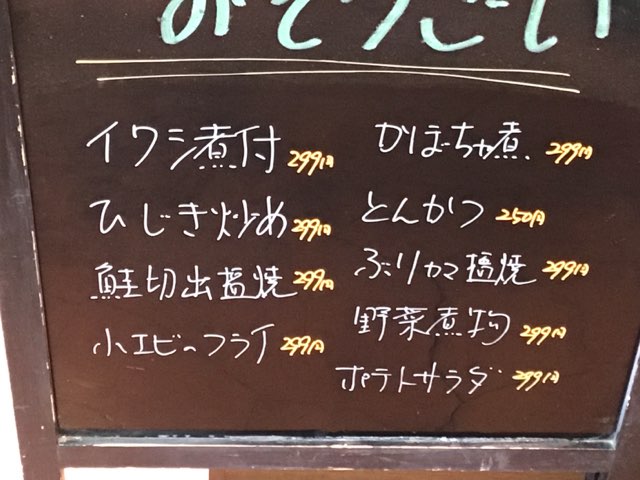 おそうざい
イワシ煮付 299円
ひじき炒め 299円
鮭切出塩焼 299円
小エビのフライ 299円
かぼちゃ煮 299円
とんかつ 250円
ぶりカマ塩焼 299円
野菜煮物 299円
ポテトサラダ 299円